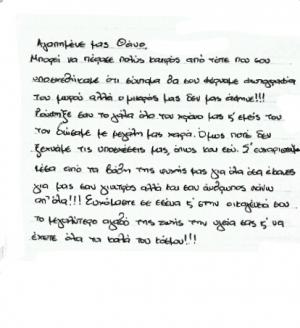 Αγαπημένε μας Θάνο.
Μπορεί να πέρασε πολύς καιρός από τότε που σου
υποσχεθήκαμε ότι σύντομα θα σου φέρναμε φωτογραφία
του μωρού αλλά ο μικρός μας δεν μας άφηνε!!!
σαν το γάλα όλο τον χρόνο μας ς' εμείς του
τον δώσαμε με μεγάλη μας χαρά. Όμως ποτέ δεν
ξεχνάμε τις υποσχέσεις μας, όπως και εσύ. Σ' ευχαριστούμε
μέσα από τα βάθη της ψυχής μας για όλα όσα έκανες
για μας σαν γιατρός αλλά και σαν άνθρωπος πάνω
απ' όλα!!! Ευχόμαστε σε εσένα ς' στην οικογένειά σου
το μεγαλύτερο αγαθό της ζωής την υγεία σας ς' να
έχετε όλα τα καλά του κόσμου!!!